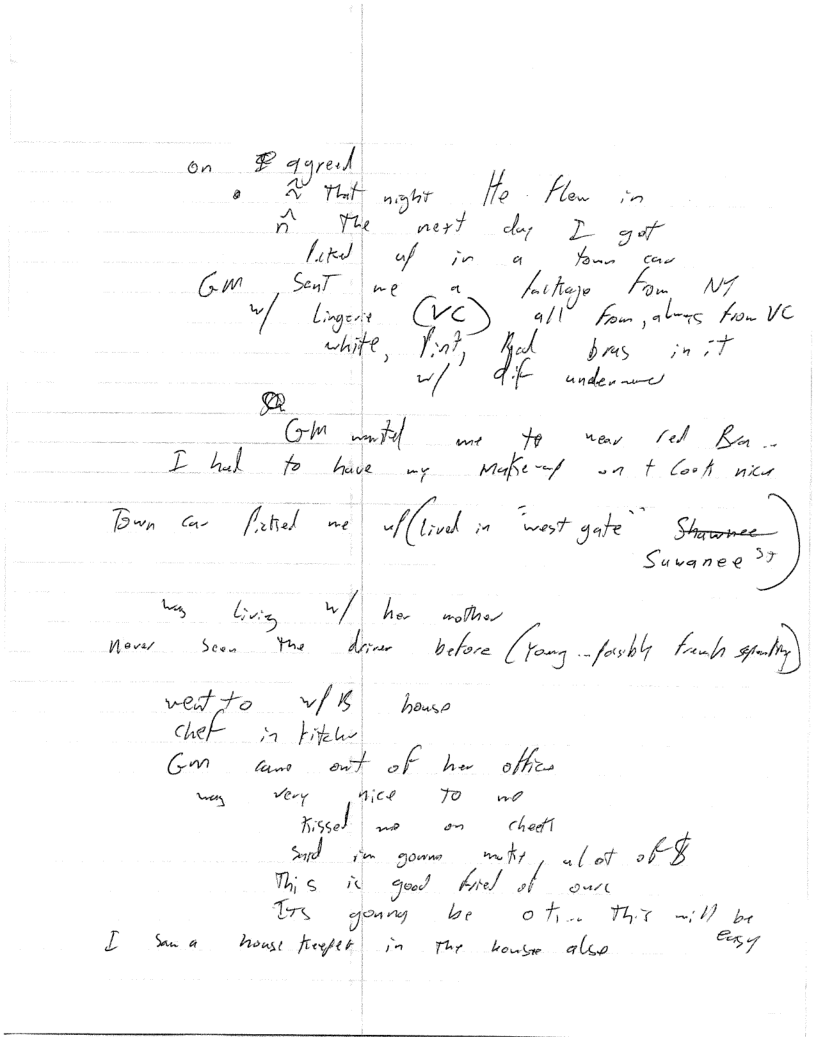 on I agreed
That night He flew in
The next day I got
picked up in a town car
GM sent me a package from NY
w/ Lingerie (VC) all from, always from VC
white, Pink, Red bras in it
w/ dif underwear
GM wanted me to wear red Bra ..
I had to have my Make-up on + look nice
Town car picked me up (lived in "west gate" Shawnee
Suwanee St)
was living w/ her mother
never seen the driver before (young .. possibly french speaking)
went to house
chef in kitchen
GM came out of her office
was very nice to me
kissed me on cheek
said im gonna make, alot of $
This is good fried of ours
ITs gonna be o k... This will be
easy
I saw a house keeper in the house also